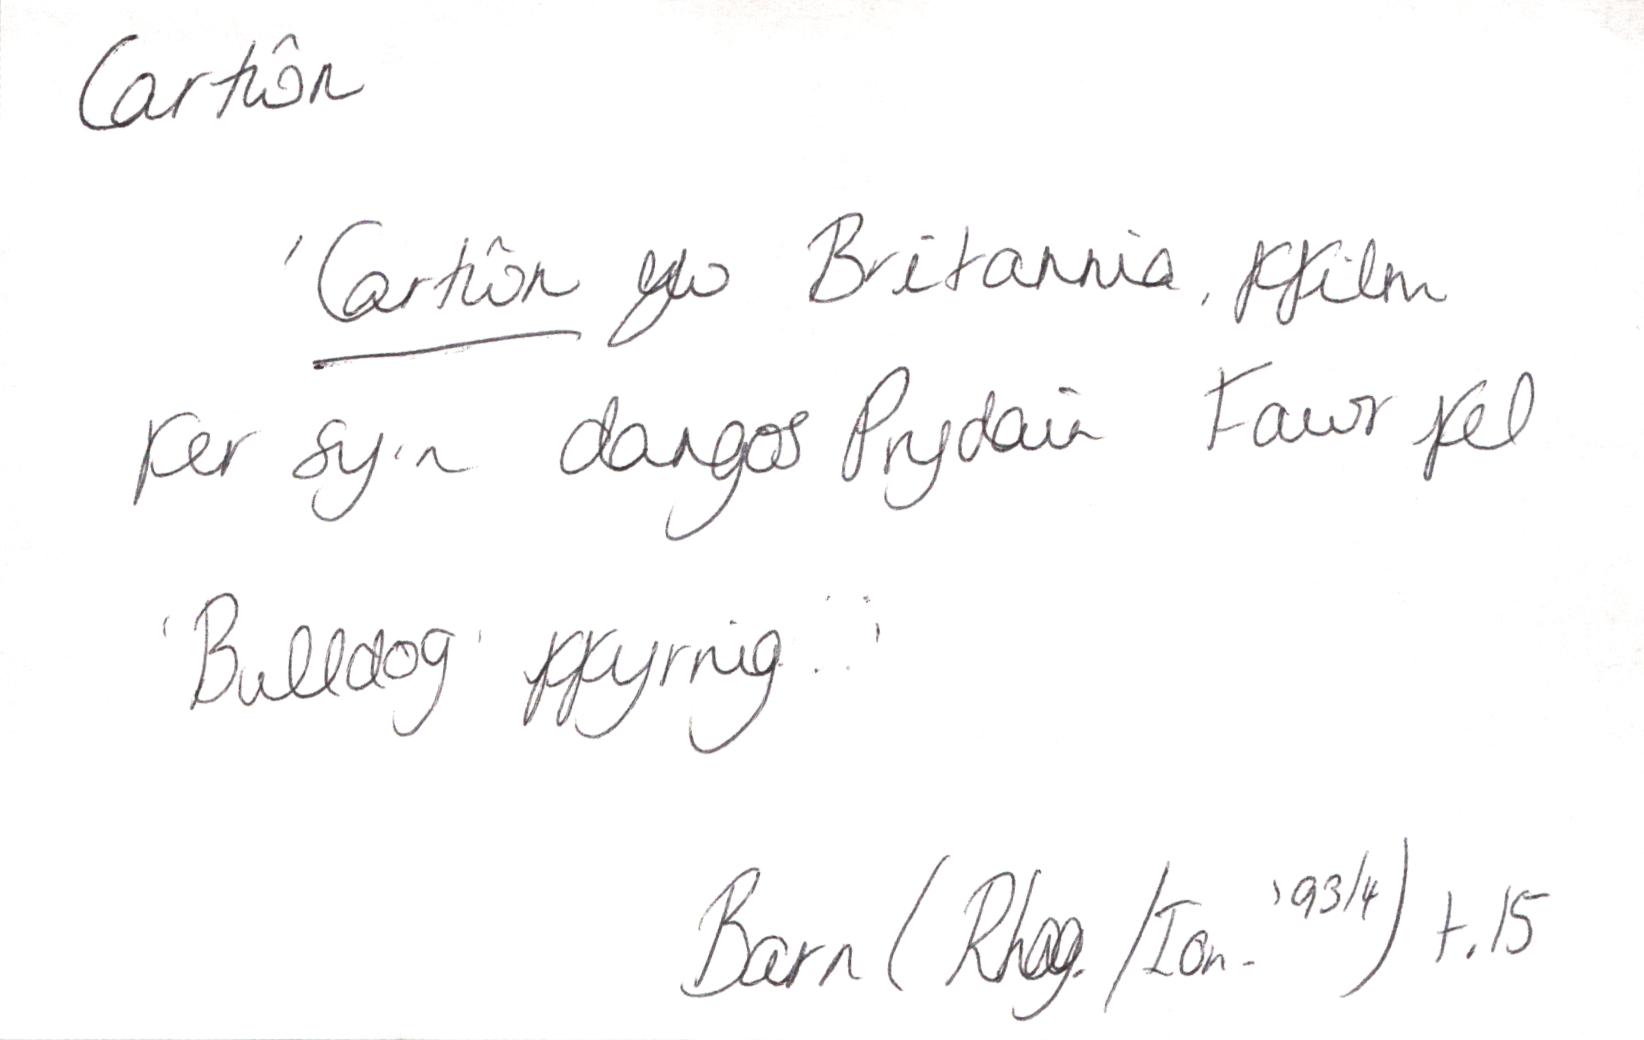 Cartŵn
'Cartŵn yw Britannia, ffilm
fer sy'n dangos Prydain Fawr fel
'Bulldog' ffyrnig...'
Barn (Rhag./Ion. '93/4) t.15